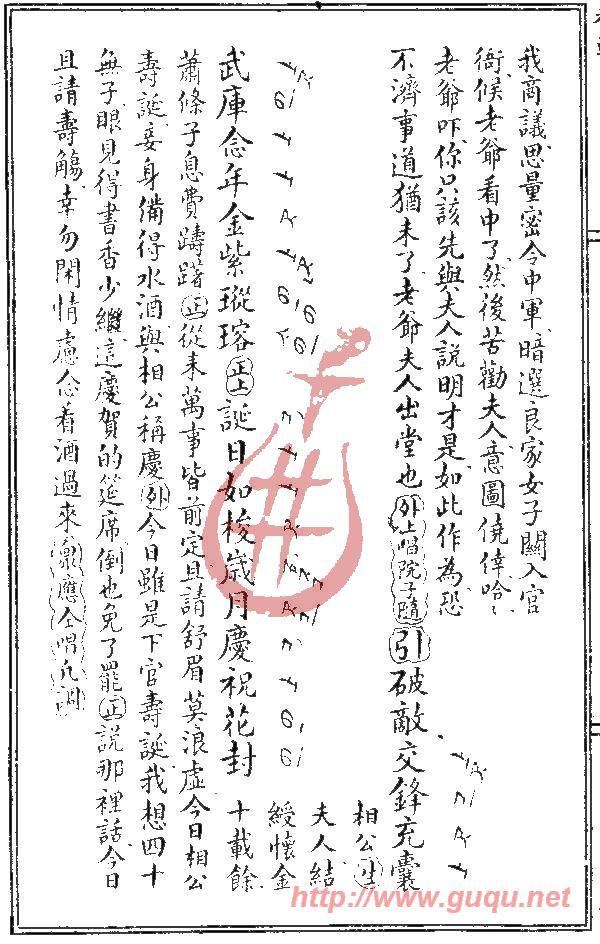 我商議思量密令中軍暗選良家女子關入官
衙候老爺看中了然後苦勸夫人意圖僥倖哈〻
老爺吓你只該先與夫人說明才是如此作為恐
不濟事道猶未了老爺夫人出堂也外上唱院子隨引破敵交鋒充囊
武庫念年金紫瑽瑢正上誕日如梭歲月慶祝花封
相公
夫人結
綬懷金
十載餘
蕭條子息費躊躇正從來萬事皆前定且請舒眉莫浪虛今日相公
壽誕妾身備得水酒與相公稱慶外今日雖是下官壽誕我想四十
無子眼見得書香少繼這慶賀的筵席倒也免了罷正說那裡話今日
且請壽觴幸勿閑情慮念着酒過來衆應仝唱凡調
http://www.guqu.net